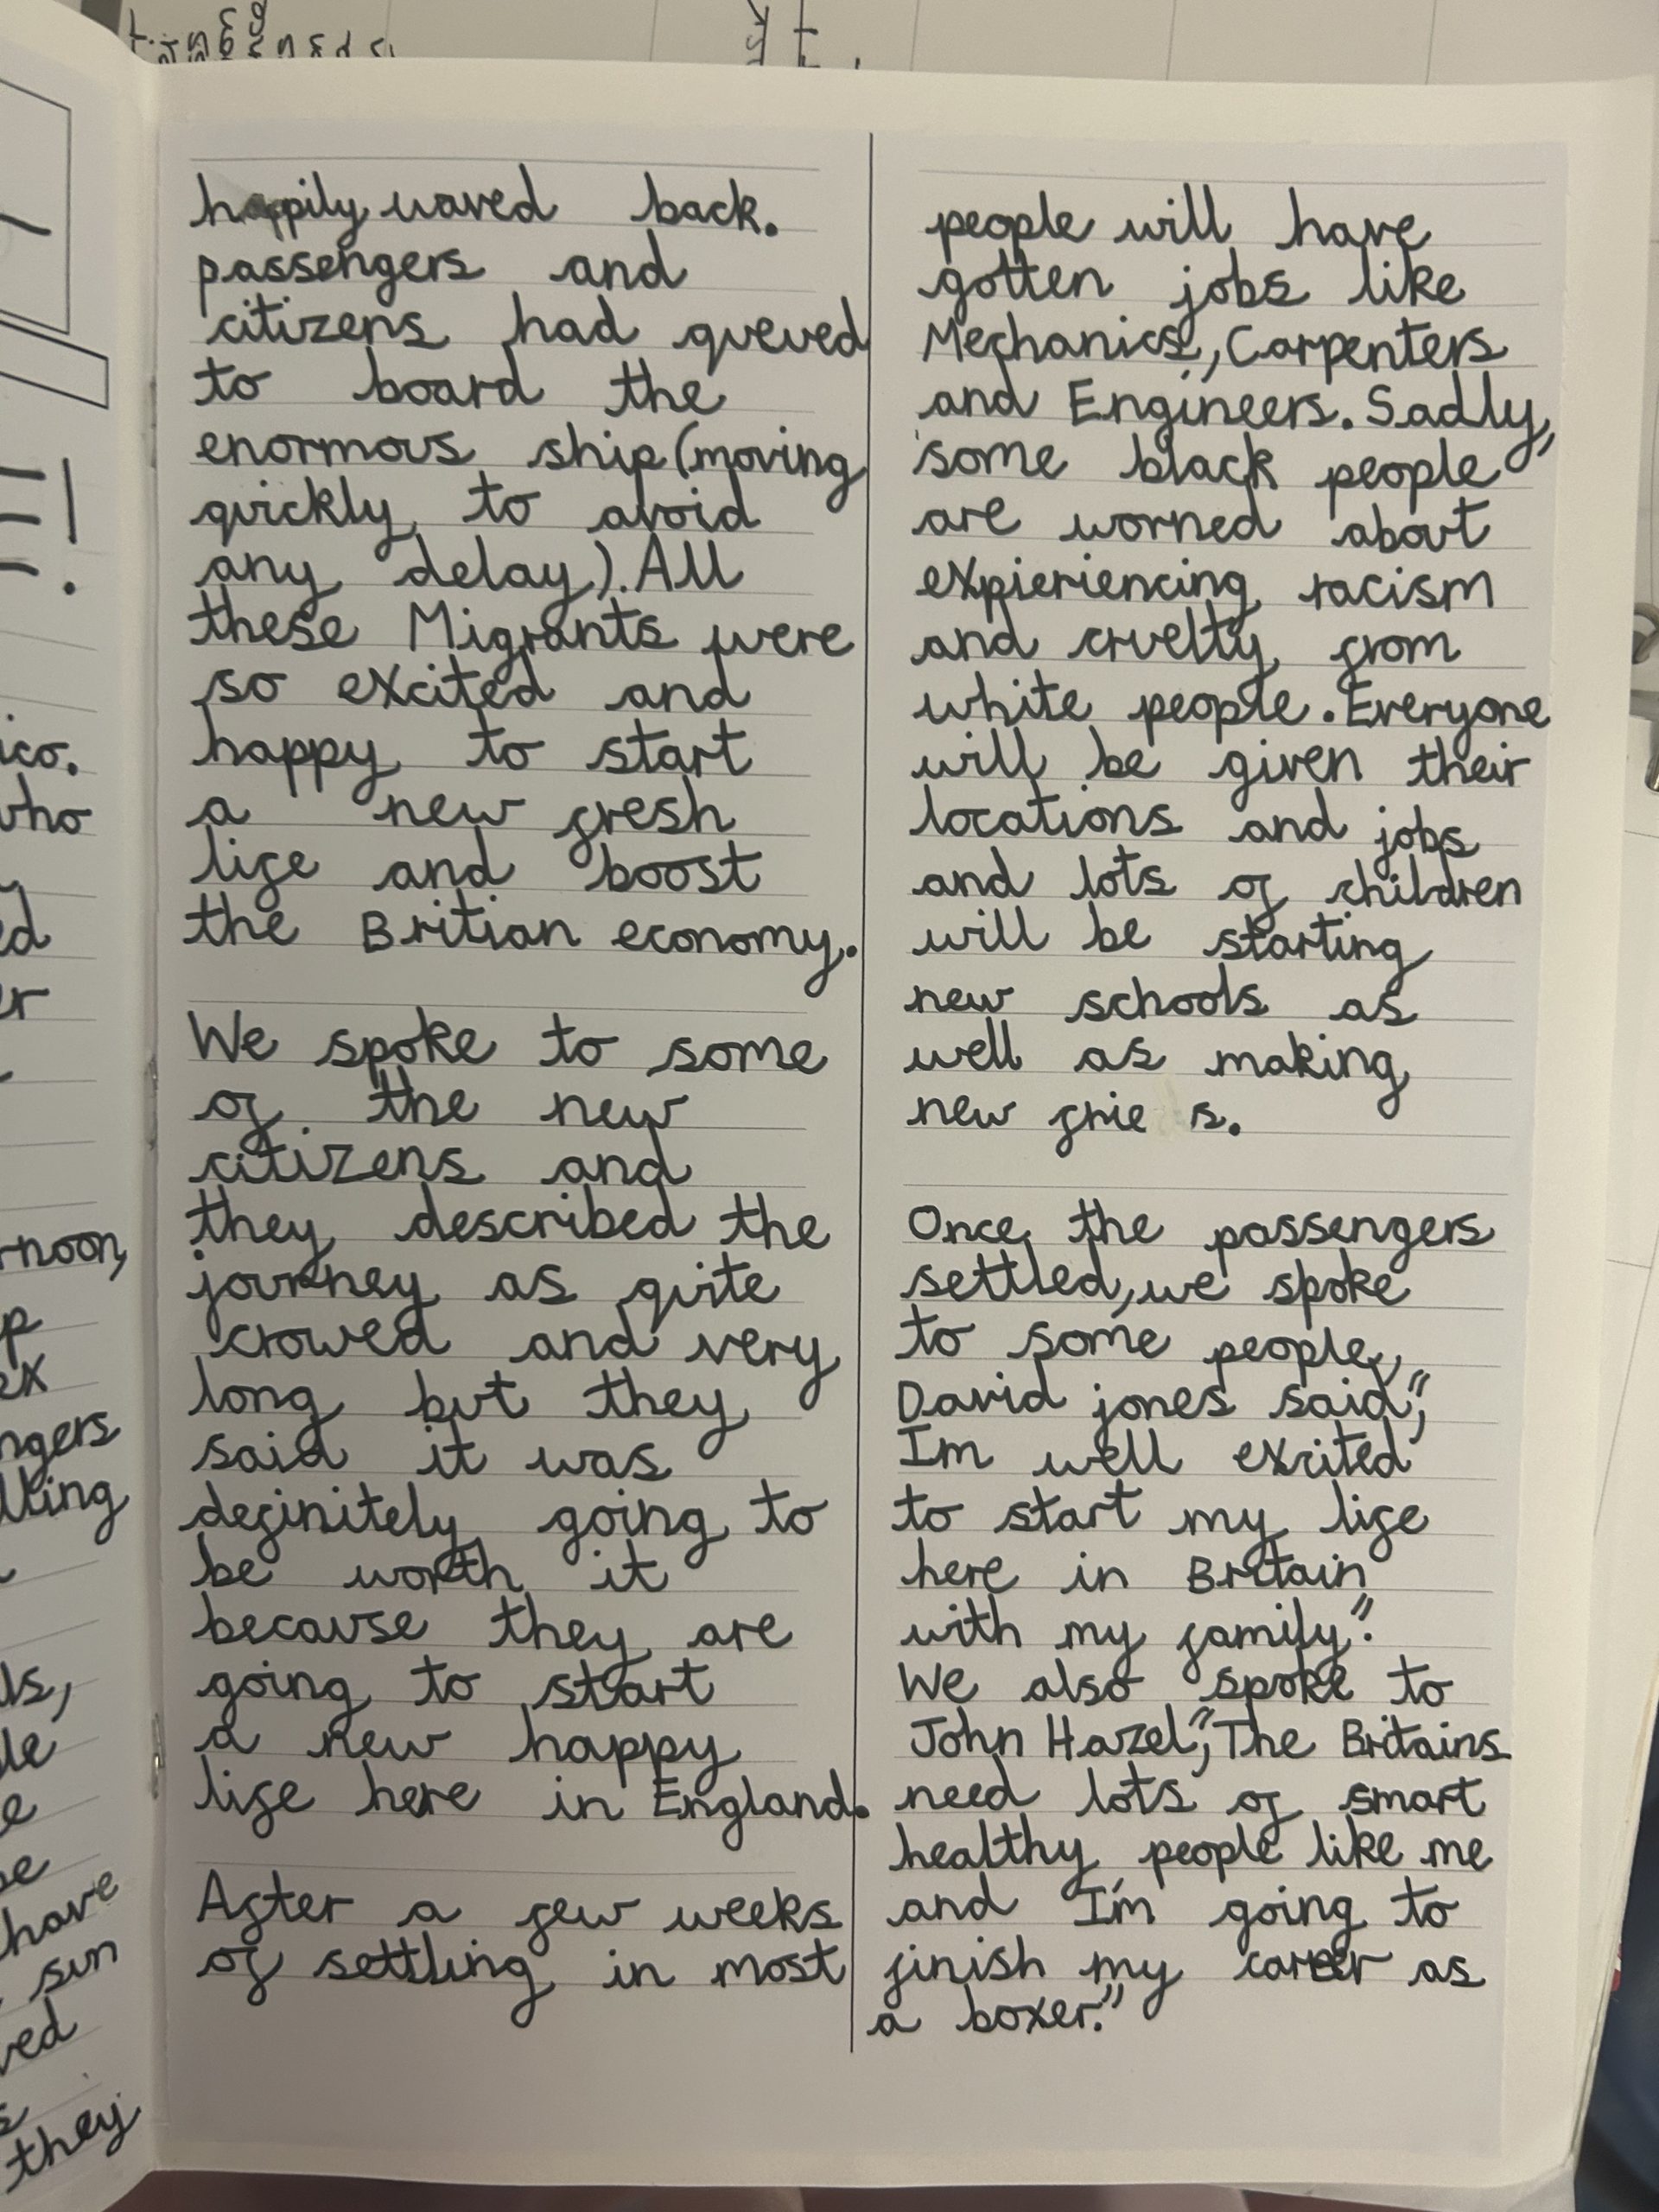 happily waved back.
passengers and
citizens had queued
to board the
enormous ship (moving
quickly to avoid
any delay). All
these Migrants were
so excited and
happy to start
a new fresh
life and boost
the Britian economy.
We spoke to some
of the new
citizens and
they described the
journey as quite
crowed and very
long but they
said it was
definitely going to
be worth it
because they are
going to start
a new happy
life here in England.
After a few weeks
of settling in most
people will have
gotten jobs like
Mechanics, Carpenters
and Engineers. Sadly,
some black people
are worried about
expieriencing racism
and cruelty from
white people. Everyone
will be given their
locations and jobs
and lots of children
will be starting
new schools as
well as making
new frie s.
Once the passengers
settled, we spoke
to some people,
David jones said,"
Im well excited
to start my life
here in Britain
with my family."
We also spoke to
John Hazel,"The Britains
need lots of smart
healthy people like me
and I'm going to
finish my career as
a boxer."
ico.
who
ed
er
rnoon,
p
ex
ngers
lling
ls,
le
e
be
have
sun
ved
they